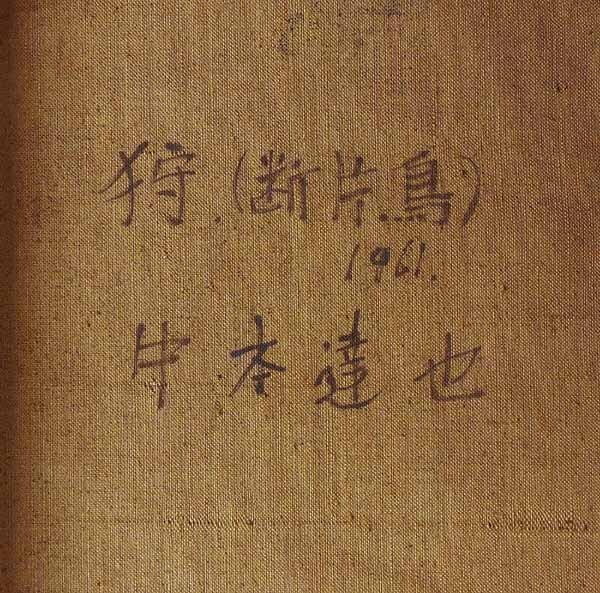 狩.(断片.鳥)
1961.
中本達也